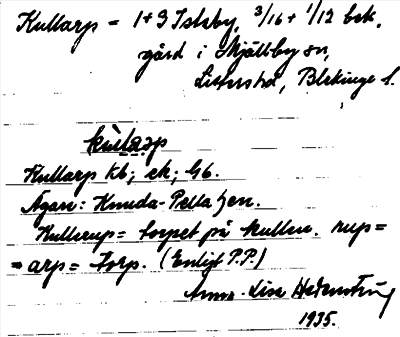 Kullarp = 1+3 Istaby, 3/16 + 1/12 bek.
gård i Mjällby sn,
Listers hd, Blekinge l.
kùlarp
Kullarp kb; ek; Gb.
Ägare: Knuda-Pella
Kullerup = torpet på kullen. rup=
= arp = torp. (Enligt P.P.)
Anna-Lisa
1935.